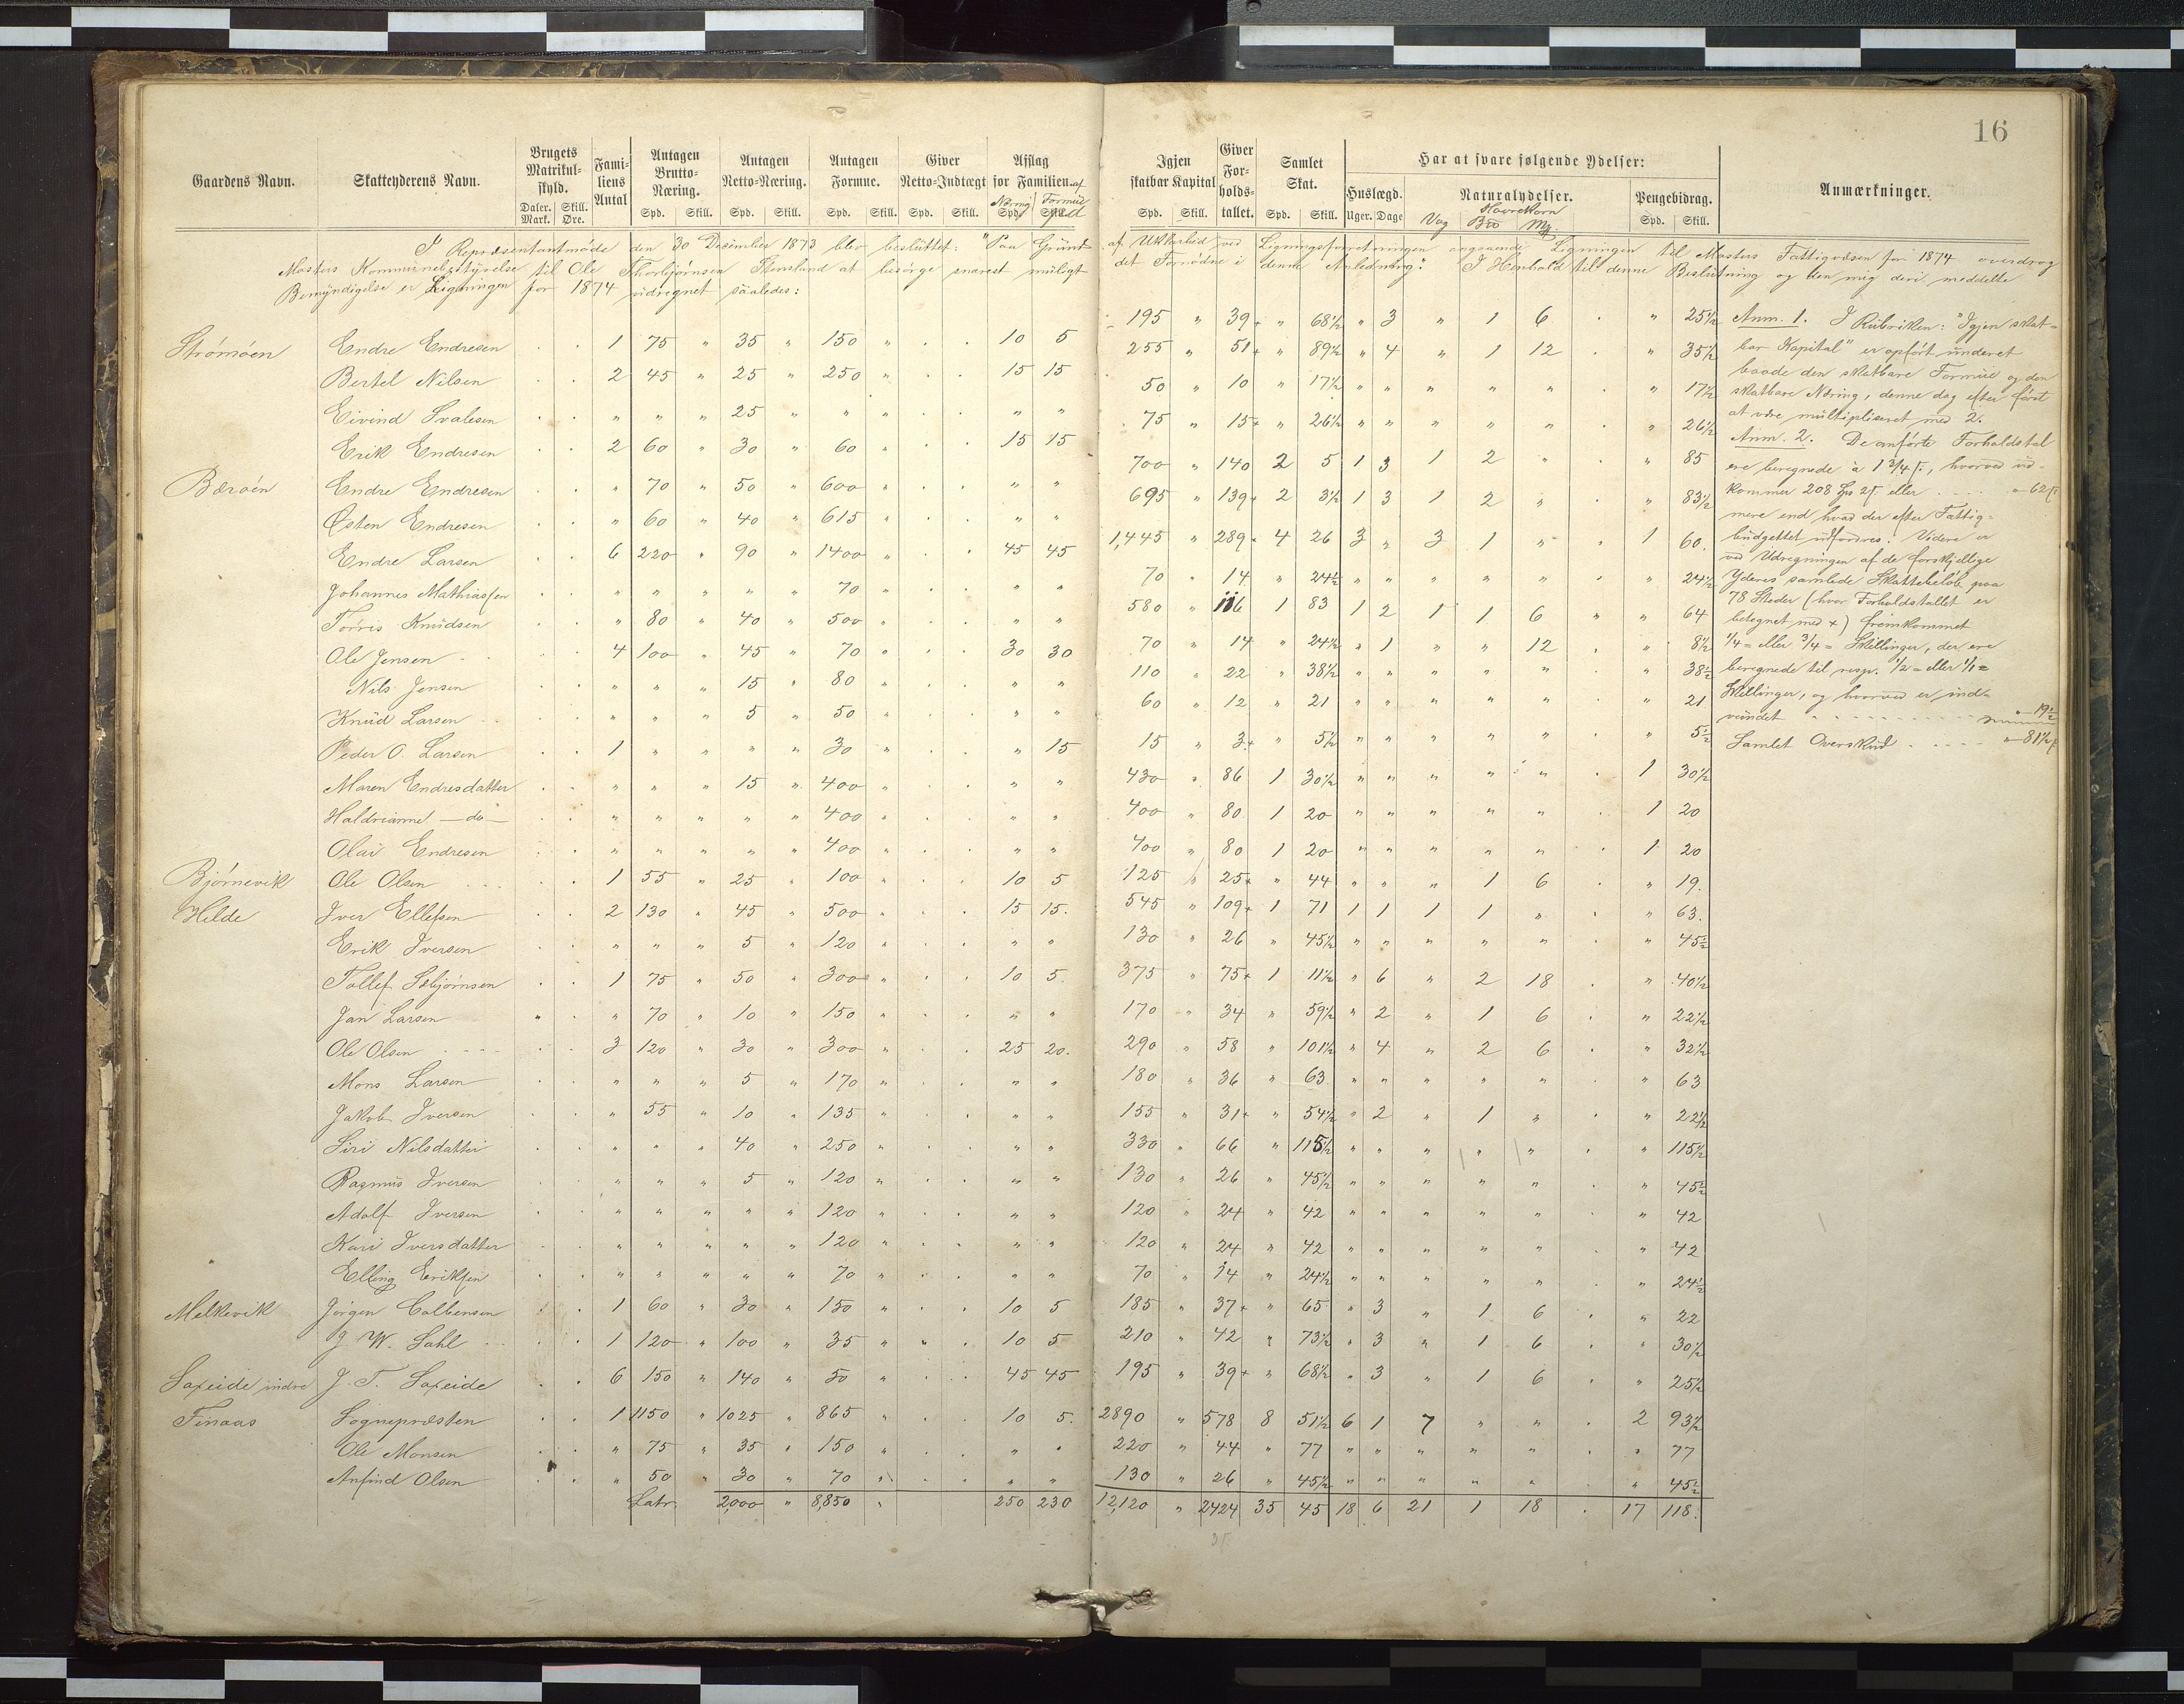 16
Gaardens Navn. Skatteyderens Navn. Brugets Matrikulskyld. Daler. Mark. Skill. Øre. Familiens Antal Antagen Brutto-Næring. Spd. Skill. Antagen Netto-Næring. Spd. Skill. Antagen Formue. Spd. Skill. Giver Netto-Indtægt Spd. Skill. Afslag for Familien. af Næring Spd. Formue Spd Igjen skatbar Kapital Spd. Skill. Giver Forholdstallet. Samlet Skat. Spd. Skill. Har at svare følgende Ydelser: Huslægd. Uger. Dage Naturalydelser. Havrekorn Vog Bto Mg. Pengebidrag. Spd. Skill. Anmærkninger.
I Repræsentantmøde den 30 December 1873 blev besluttet: "Paa Grund af Uttherhed ved Ligningsforretningen angaaende Ligningen til Mosters Fattigvæsen for 1874 overdrog
Mosters Kommunebestyrelse til Ole Thorbjørnsen Steneland at besørge snarest muligt det Fornødne i denne Anledning." I Henhold til denne Beslutning og den mig deri meddelte
Bemyndigelse er Ligningen for 1874 udregnet saaledes:
Strømøen Endre Endresen . . 1 75 " 35 " 150 " . . 10 5 195 " 39+ " 68½ " 3 " 1 6 . " 25½
Bertel Nilsen . . 2 45 " 25 " 250 " . . 15 15 255 " 51+ " 89½ " 4 " 1 12 . " 35½
Eivind Svalesen . . " " " 25 " " " . . " " 50 " 10 " 17½ " " " " " . " 17½
Erik Endresen . . 2 60 " 30 " 60 " . . 15 15 75 " 15+ " 26½ " " " " " . " 26½
Bærøen Endre Endresen . . " 70 " 50 " 600 " . . " " 700 " 140 2 5 1 3 1 2 " . " 85
Østen Endresen . . " 60 " 40 " 615 " . . " " 695 " 139+ 2 3½ 1 3 1 2 " . " 83½
Endre Larsen . . 6 220 " 90 " 1400 " . . 45 45 1,445 " 289+ 4 26 3 " 3 1 " " 1 60.
Johannes Mathiassen . . " " " " " 70 " . . " " 70 " 14 " 24½ " " " " " . " 24½
Torris Knudsen . . " 80 " 40 " 500 " . . " " 580 " 116 1 83 1 2 1 1 6 " " 64
Ole Jensen . . 4 100 " 45 " 70 " . . 30 30 70 " 14 " 24½ " 1 " " 12 . " 8½
Nils Jensen . . " " " 15 " 80 " . . " " 110 " 22 " 38½ " " " " " . " 38½
Knud Larsen . . " " " 5 " 50 " . . " " 60 " 12 " 21 " " " " " . " 21
Peder O. Larsen . . 1 " " " " 30 " . . " 15 15 " 3+ " 5½ " " " " " . " 5½
Maren Endresdatter . . " " " 15 " 400 " . . " " 430 " 86 1 30½ " " " " " . 1 30½
Haldrianne — do — . . " " " " " 400 " . . " " 400 " 80 1 20 " " " " " . 1 20
Olai Endresen . . " " " " " 400 " . . " " 400 " 80 1 20 " " " " " . 1 20
Bjørnevik Ole Olsen . . 1 55 " 25 " 100 " . . 10 5 125 " 25+ " 44 " " " 1 6 . " 19.
Hilde Iver Ellefsen . . 2 130 " 45 " 500 " . . 15 15. 545 " 109+ 1 71 1 1 1 1 " . " 63.
Erik Iversen . . " " " 5 " 120 " . . " " 130 " 26 " 45½ " " " " " . " 45½
Tollef Sebjørnsen . . 1 75 " 50 " 300 " . . 10 5. 375 " 75+ 1 11½ " 6 " 2 18 . " 40½
Jan Larsen " . " 70 " 10 " 150 " . . " " 170 " 34 " 59½ " 2 " 1 6 . " 22½
Ole Olsen . . 3 120 " 30 " 300 " . . 25 20. 290 " 58 " 101½ " 4 " 2 6 . " 32½
Mons Larsen . . " " " 5 " 170 " . . " " 180 " 36 " 63 " " " " " . " 63
Jakob Iversen . . " 55 " 10 " 135 " . . " " 155 " 31+ " 54½ " 2 " 1 " . " 22½
Siri Nilsdatter . . " " " 40 " 250 " . . " " 330 " 66 " 115½ " " " " " . " 115½
Rasmus Iversen . . " " " 5 " 120 " . . " " 130 " 26 " 45½ " " " " " . " 45½
Adolf Iversen . . " " " " " 120 " . . " " 120 " 24 " 42 " " " " " . " 42
Kari Iversdatter . . " " " " " 120 " . . " " 120 " 24 " 42 " " " " " . " 42
Elling Eriksen . . " " " " " 70 " . . " " 70 " 14 " 24½ " " " " " . " 24½
Melkevik Jørgen Colbensen . . 1 60 " 30 " 150 " . . 10 5 185 " 37+ " 65 " 3 " 1 6 . " 22
J W. Sahl . . 1 120 " 100 " 35 " " . 10 5 210 " 42 " 73½ " 3 " 1 6 . " 30½
Saxeide indre J. T. Saxeide . . 6 150 " 140 " 50 " . . 45 45 195 " 39+ " 68½ " 3 " 1 6 . " 25½
Finaas Sognepræsten . . 1 1150 " 1025 " 865 " . . 10 5. 2890 " 578 8 51½ 6 1 7 " " . 2 93½
Ole Monsen . . " 75 " 35 " 150 " . . " " 220 " 44 " 77 " " " " " . " 77
Anfind Olsen . . " 50 " 30 " 70 " . . " " 130 " 26 " 45½ " " " " " . " 45½
Latr. 2,000 " 8,850 " 250 230 12,120 " 2424 35 45 18 6 21 1 18 . 17 118.
Anm. 1. I Rubriken: "Igjen skat=
bar Kapital" er opført underet
baade den skatbare Formue og den
skatbare Næring, denne dog efter først
at være multipliseret med 2.
Anm. 2. De anførte Forholdstal
ere beregnede à 1 3/4 ß., hvorved ud-
kommer 208 Spd 2ß. eller . . . " 62ß
mere end hvad der efter Fattig=
budgettet udfordres. Videre er
ved Udregningen af de forskjellige
Yderes samlede Skattebeløb paa
78 Steder (hvor Forholdstallet er
betegnet med +) fremkommet
1/4 = eller 3/4 = Skillinger, der ere
beregnede til resp. 1/2 = eller 1/1 =
Skillinger, og hvorved er ind=
vundet . . . . . " 19½
Samlet Overskud . . . . " 81½ß